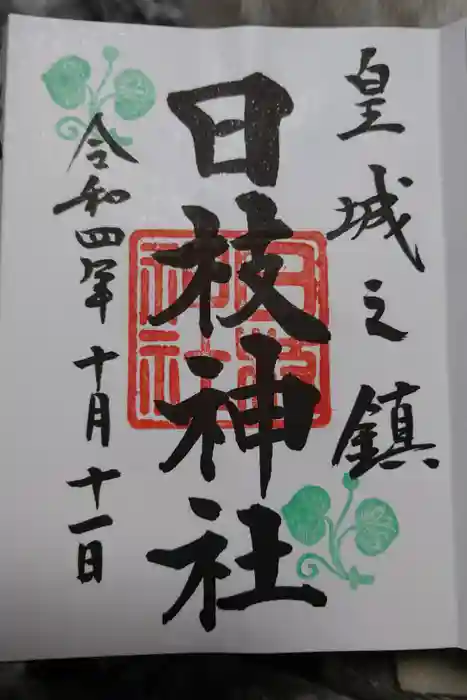 皇城之鎮
日枝神社
令和四年十月十一日